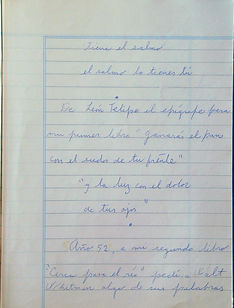 Tiene el salmo
el salmo lo tienes tú
De León Felipe el epígrafe para
mi primer libro "Ganarás el pan
con el sudor de tu frente"
"y la luz con el dolor
de tus ojos"
Año 52, a mi segundo libro
"Cerca para el río" pedí a Walt
Whitman algo de sus palabras